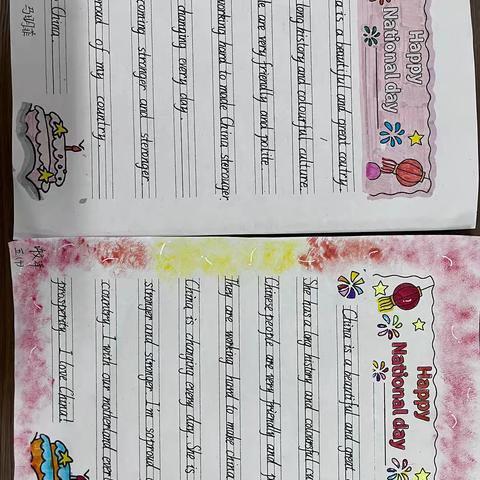 Happy
National day
a is a beautiful and great coutry.
long history and colourful culture.
le are very friendly and polite.
working hard to mode China steronger.
changing every day.
coming stronger and sternager.
proud of my country.
China.
Happy
National day
China is a beautiful and great
She has a long history and colourful cu
Chinese people are very friendly and p
They are working hard to make china
China is changing every day. She is
stronger and stronger. I'm soproud
country. I wish our motherland ever
prosperity. I love China!